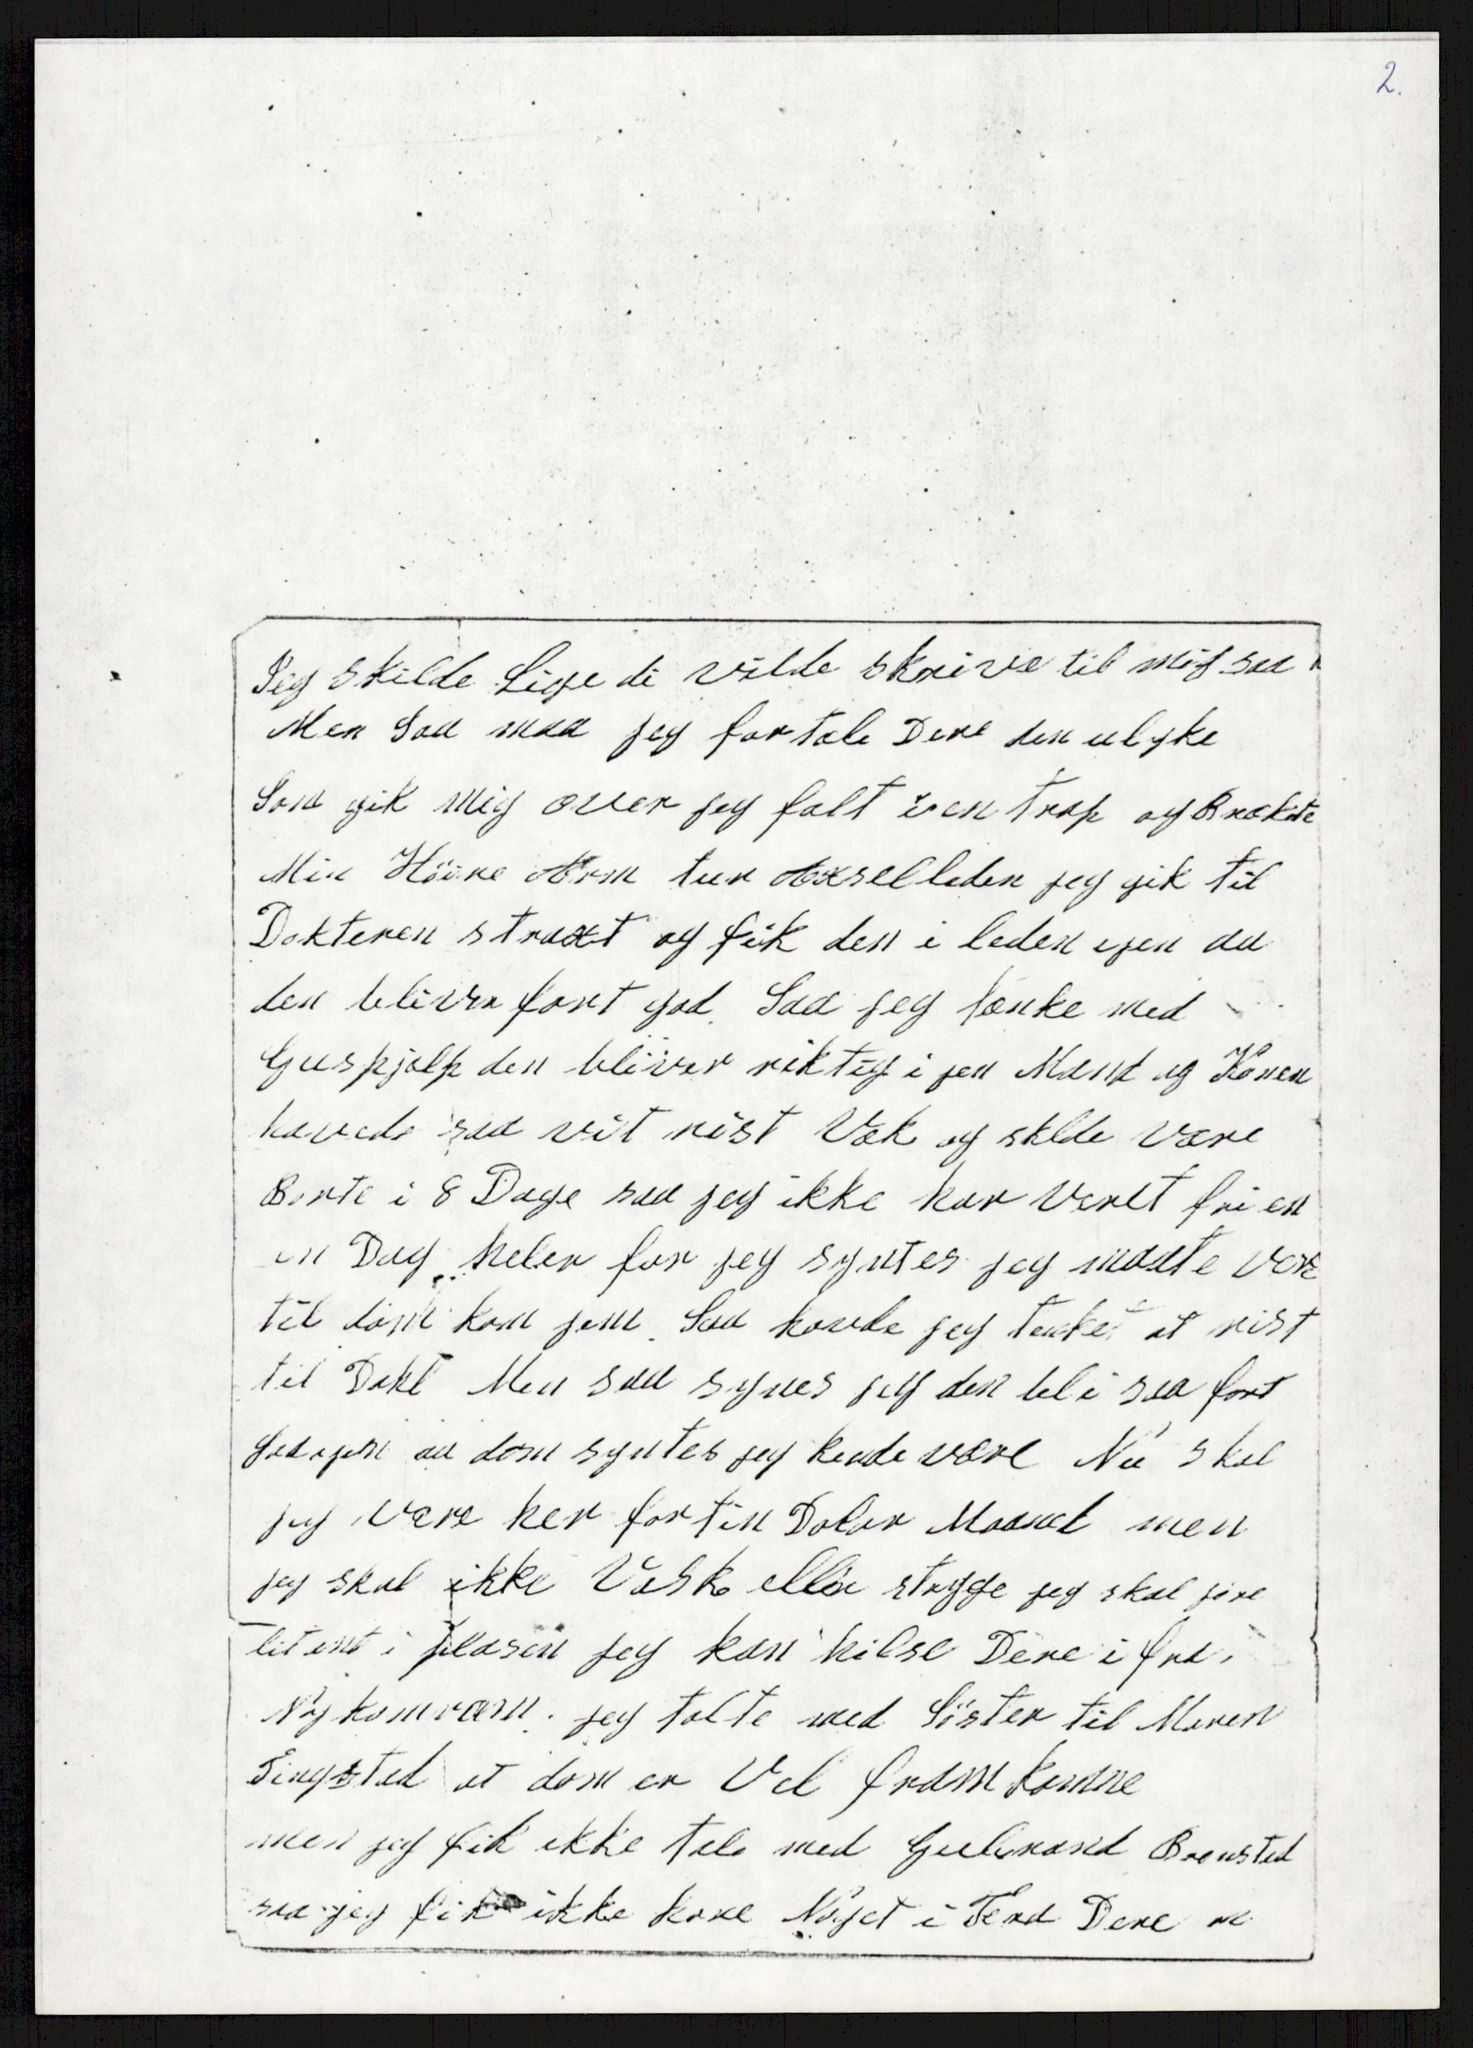 2.
Jeg skilde Lige di vilde skrive til mig saa
Men Saa maa jeg fortale Dere den ulyke
Som gik mig over jeg falt i en trap og Brækte
Min Höire Arm tur Axselleden jeg gik til
Dokteren straxt og fik den i leden igen aa
den bliver fort god Saa jeg tænke med
Gus hjælp den bliver riktig i jen Mand og Konen
havede saa vit rist Væk og sklde være
Borte i 8 Dage saa jeg ikke har Vært fri en
en Dag heler for jeg syntes jeg maate være
til dom kom jem Saa havde jeg tenket at rist
til Dokt Men saa synes jeg den bli saa fort
God igen aa dom syntes jeg kunde være Nu skal
jeg Være her for tin Dolar Maanet men
jeg skal ikke Vask eller stryge jeg skal jøre
lit ent i plasen jeg kan hilse Dere i fra
Nykomran. jeg talte med Söster til Maren
Tingstad at dom er Vel framkomne
men jeg fik ikke tale med Gulbrand Braasted
saa jeg fik ikke høre Noget i Fra Dere